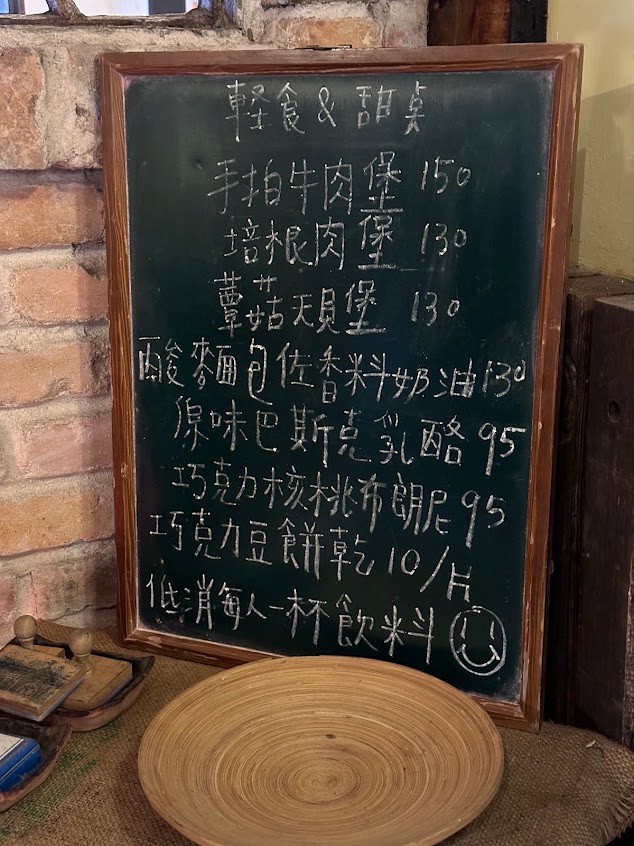 軽食 & 甜桌
手拍牛肉堡 150
培根肉堡 130
蕈菇天貝堡 130
酸麵包佐香料奶油 130
原味巴斯克乳酪 95
巧克力核桃布朗尼 95
巧克力豆餅乾 10/片
低消每人一杯飲料